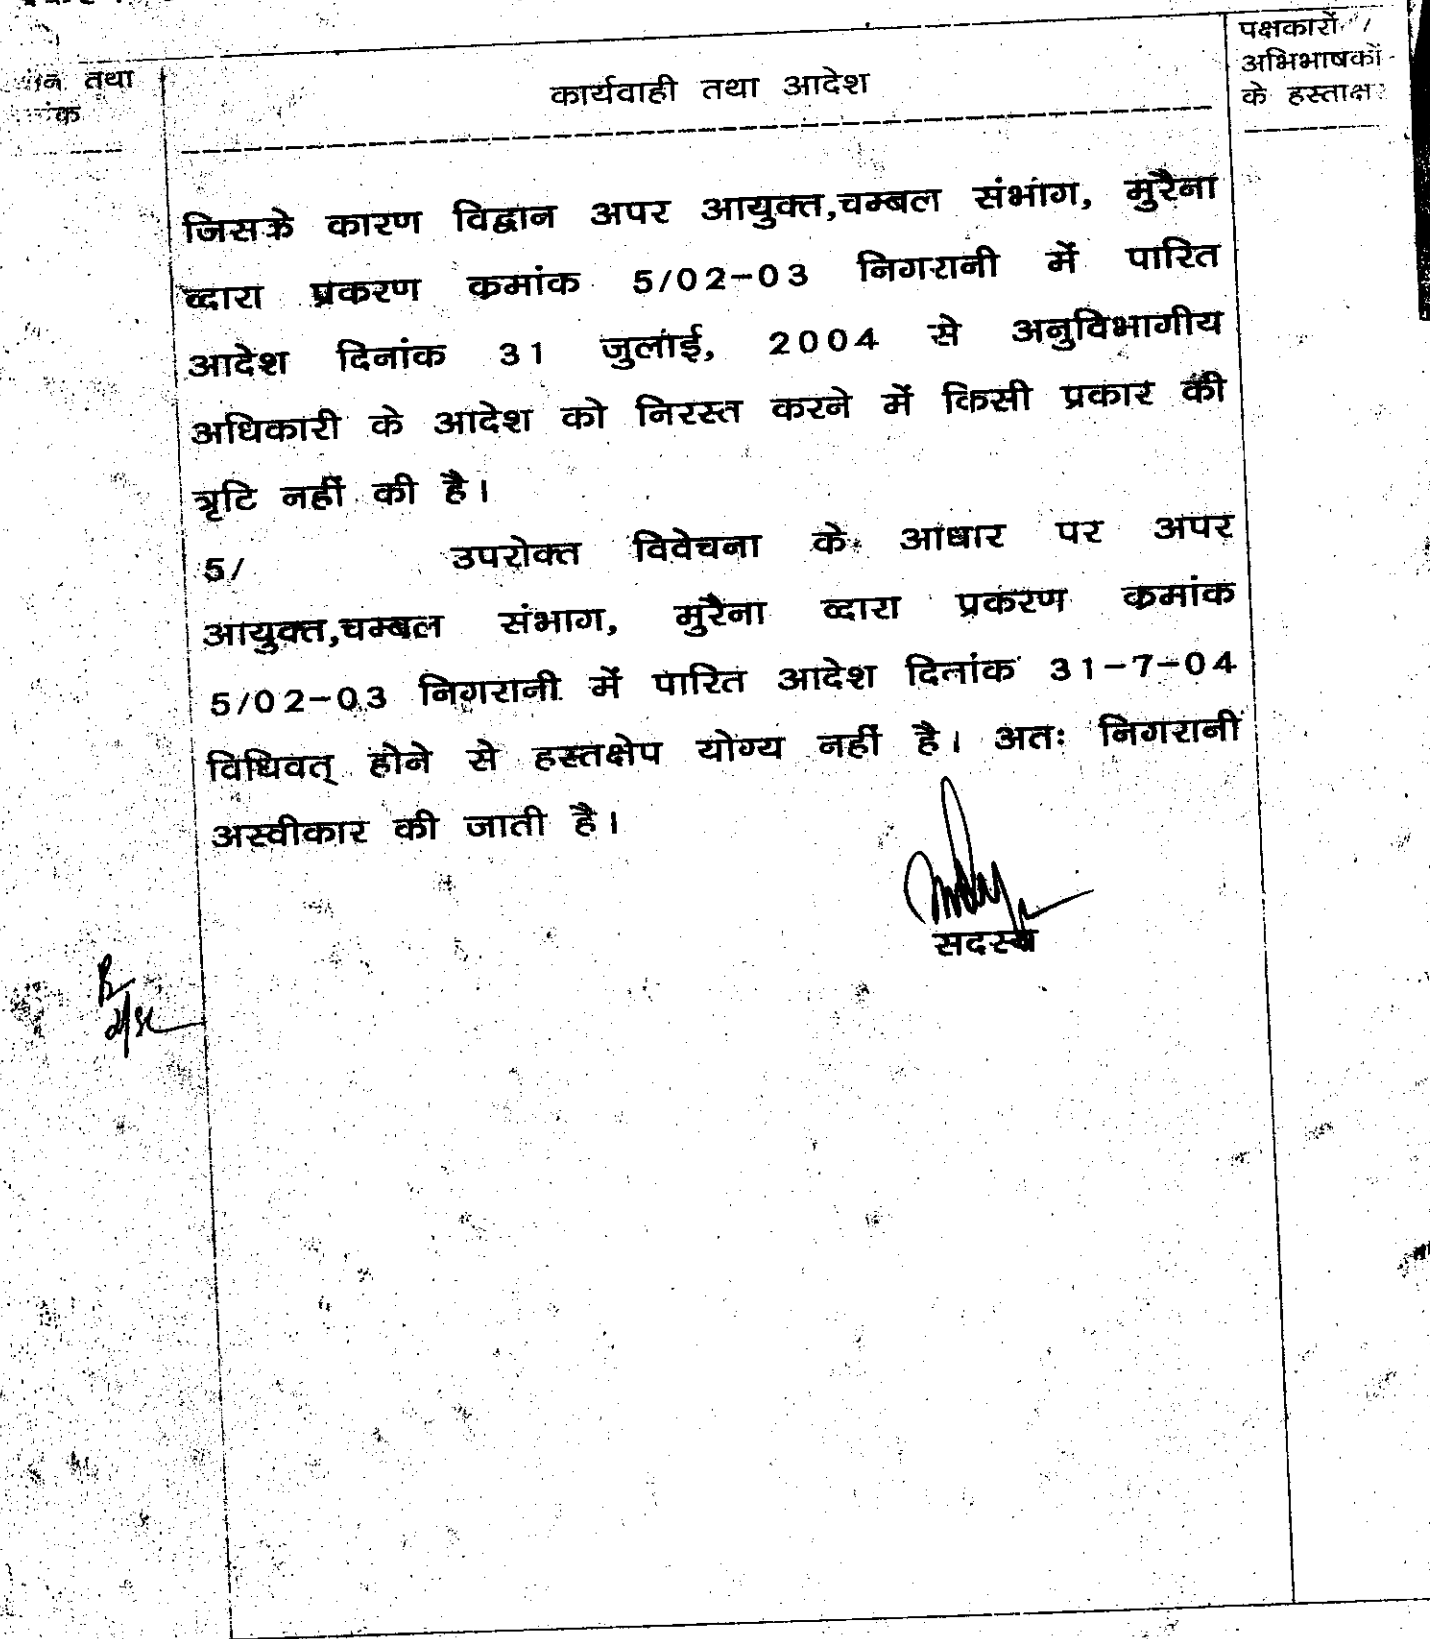 तथा
कार्यवाही तथा आदेश
पक्षकारों /
अभिभाषकों
के हस्ताक्षर
जिसके कारण विद्वान अपर आयुक्त,चम्बल संभाग, मुरैना
व्दारा प्रकरण क्रमांक 5/02-03 निगरानी में पारित
आदेश दिनांक 31 जुलाई, 2004 से अनुविभागीय
अधिकारी के आदेश को निरस्त करने में किसी प्रकार की
त्रृटि नहीं की है।
5/ उपरोक्त विवेचना के आधार पर अपर
आयुक्त,चम्बल संभाग, मुरैना व्दारा प्रकरण क्रमांक
5/02-03 निगरानी में पारित आदेश दिनांक 31-7-04
विधिवत् होने से हस्तक्षेप योग्य नहीं है। अतः निगरानी
अस्वीकार की जाती है।
सदस्य